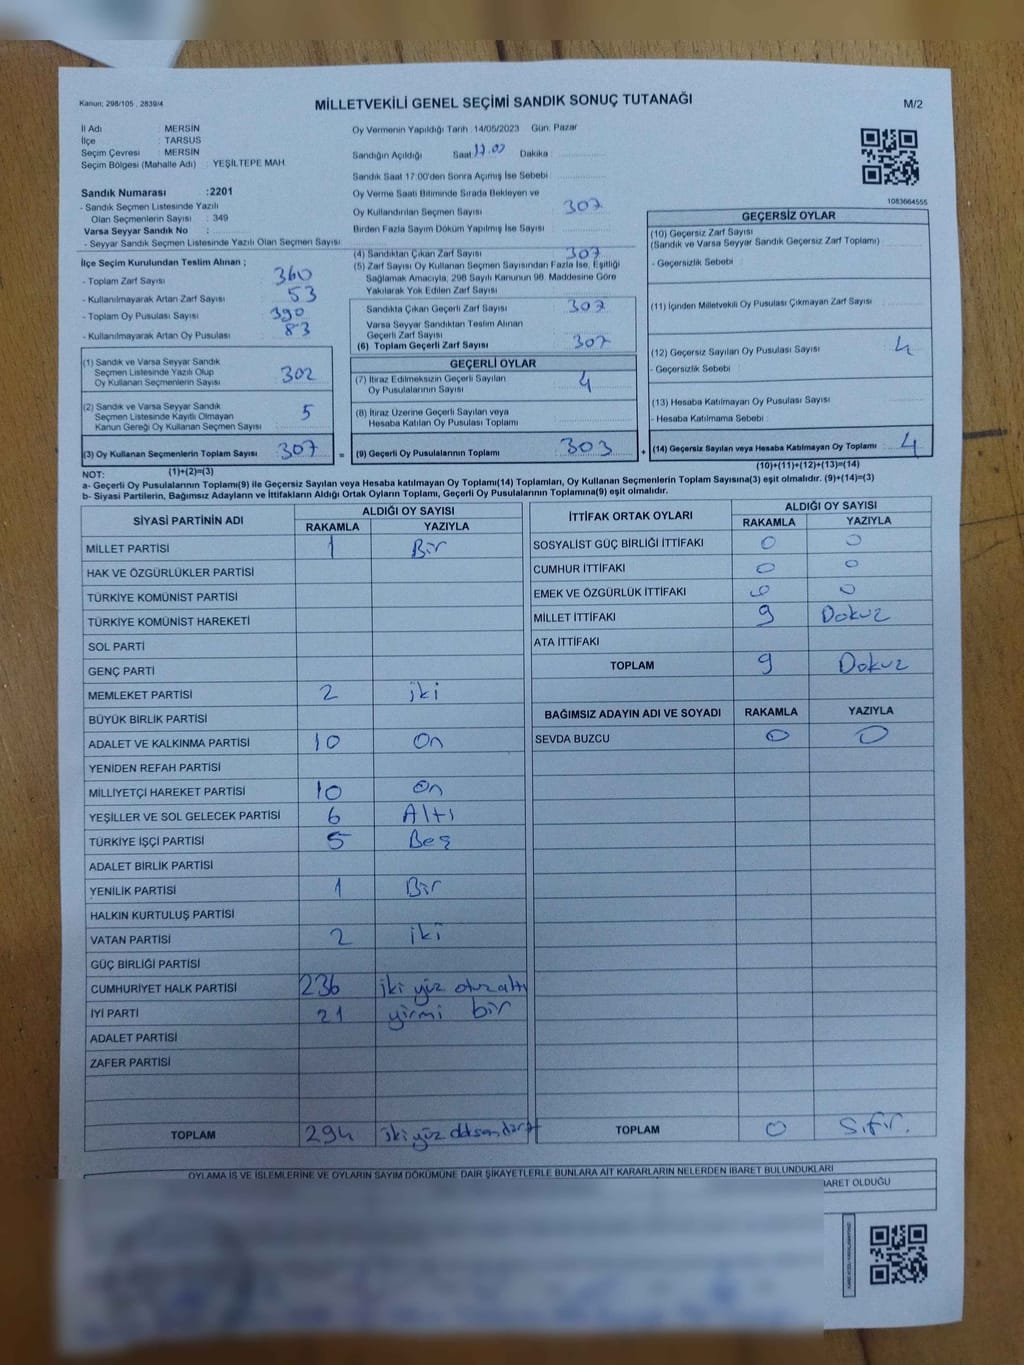 Kanun; 298/105 , 2839/4
MİLLETVEKİLİ GENEL SEÇİMİ SANDIK SONUÇ TUTANAĞI
M/2
İl Adı : MERSİN
İlçe : TARSUS
Seçim Çevresi : MERSİN
Seçim Bölgesi (Mahalle Adı) : YEŞİLTEPE MAH.
Sandık Numarası :2201
- Sandık Seçmen Listesinde Yazılı
Olan Seçmenlerin Sayısı : 349
Varsa Seyyar Sandık No :
- Seyyar Sandık Seçmen Listesinde Yazılı Olan Seçmen Sayısı
Oy Vermenin Yapıldığı Tarih :14/05/2023 Gün: Pazar
Sandığın Açıldığı Saat 17.00 Dakika :
Sandık Saat 17:00'den Sonra Açımış İse Sebebi
Oy Verme Saati Bitiminde Sırada Bekleyen ve
Oy Kullandırılan Seçmen Sayısı 307
Birden Fazla Sayım Döküm Yapılmış İse Sayısı
1083664555
İlçe Seçim Kurulundan Teslim Alınan ;
- Toplam Zarf Sayısı 360
- Kullanılmayarak Artan Zarf Sayısı 53
- Toplam Oy Pusulası Sayısı 390
- Kullanılmayarak Artan Oy Pusulası 83
(1) Sandık ve Varsa Seyyar Sandık
Seçmen Listesinde Yazılı Olup
Oy Kullanan Seçmenlerin Sayısı 302
(2) Sandık ve Varsa Seyyar Sandık
Seçmen Listesinde Kayıtlı Olmayan
Kanun Gereği Oy Kullanan Seçmen Sayısı 5
(3) Oy Kullanan Seçmenlerin Toplam Sayısı 307
(1)+(2)=(3)
(4) Sandıktan Çıkan Zarf Sayısı 307
(5) Zarf Sayısı Oy Kullanan Seçmen Sayısından Fazla İse, Eşitliği
Sağlamak Amacıyla, 298 Sayılı Kanunun 98. Maddesine Göre
Yakılarak Yok Edilen Zarf Sayısı
Sandıkta Çıkan Geçerli Zarf Sayısı 307
Varsa Seyyar Sandıktan Teslim Alınan
Geçerli Zarf Sayısı
(6) Toplam Geçerli Zarf Sayısı 307
GEÇERLİ OYLAR
(7) İtiraz Edilmeksizin Geçerli Sayılan
Oy Pusulalarının Sayısı 4
(8) İtiraz Üzerine Geçerli Sayılan veya
Hesaba Katılan Oy Pusulası Toplamı
= (9) Geçerli Oy Pusulalarının Toplamı 303
GEÇERSİZ OYLAR
(10) Geçersiz Zarf Sayısı
(Sandık ve Varsa Seyyar Sandık Geçersiz Zarf Toplamı)
- Geçersizlik Sebebi :
(11) İçinden Milletvekili Oy Pusulası Çıkmayan Zarf Sayısı
(12) Geçersiz Sayılan Oy Pusulası Sayısı 4
- Geçersizlik Sebebi :
(13) Hesaba Katılmayan Oy Pusulası Sayısı
- Hesaba Katılmama Sebebi :
+ (14) Geçersiz Sayılan veya Hesaba Katılmayan Oy Toplamı 4
(10)+(11)+(12)+(13)=(14)
NOT:
a- Geçerli Oy Pusulalarının Toplamı(9) ile Geçersiz Sayılan veya Hesaba katılmayan Oy Toplamı(14) Toplamları, Oy Kullanan Seçmenlerin Toplam Sayısına(3) eşit olmalıdır. (9)+(14)=(3)
b- Siyasi Partilerin, Bağımsız Adayların ve İttifakların Aldığı Ortak Oyların Toplamı, Geçerli Oy Pusulalarının Toplamına(9) eşit olmalıdır.
SİYASİ PARTİNİN ADI ALDIĞI OY SAYISI
RAKAMLA YAZIYLA
MİLLET PARTİSİ 1 Bir
HAK VE ÖZGÜRLÜKLER PARTİSİ
TÜRKİYE KOMÜNİST PARTİSİ
TÜRKİYE KOMÜNİST HAREKETİ
SOL PARTİ
GENÇ PARTİ
MEMLEKET PARTİSİ 2 iki
BÜYÜK BİRLİK PARTİSİ
ADALET VE KALKINMA PARTİSİ 10 On
YENİDEN REFAH PARTİSİ
MİLLİYETÇİ HAREKET PARTİSİ 10 On
YEŞİLLER VE SOL GELECEK PARTİSİ 6 Altı
TÜRKİYE İŞÇİ PARTİSİ 5 Beş
ADALET BİRLİK PARTİSİ
YENİLİK PARTİSİ 1 Bir
HALKIN KURTULUŞ PARTİSİ
VATAN PARTİSİ 2 iki
GÜÇ BİRLİĞİ PARTİSİ
CUMHURİYET HALK PARTİSİ 236 iki yüz otuz altı
İYİ PARTİ 21 yirmi bir
ADALET PARTİSİ
ZAFER PARTİSİ
TOPLAM 294 iki yüz
İTTİFAK ORTAK OYLARI ALDIĞI OY SAYISI
RAKAMLA YAZIYLA
SOSYALİST GÜÇ BİRLİĞİ İTTİFAKI 0 0
CUMHUR İTTİFAKI 0 0
EMEK VE ÖZGÜRLÜK İTTİFAKI 0 0
MİLLET İTTİFAKI 9 Dokuz
ATA İTTİFAKI
TOPLAM 9 Dokuz
BAĞIMSIZ ADAYIN ADI VE SOYADI RAKAMLA YAZIYLA
SEVDA BUZCU 0 0
TOPLAM 0 Sıfır.
OYLAMA İŞ VE İŞLEMLERİNE VE OYLARIN SAYIM DÖKÜMÜNE DAİR ŞİKAYETLERLE BUNLARA AİT KARARLARIN NELERDEN İBARET BULUNDUKLARI
İBARET OLDUĞU